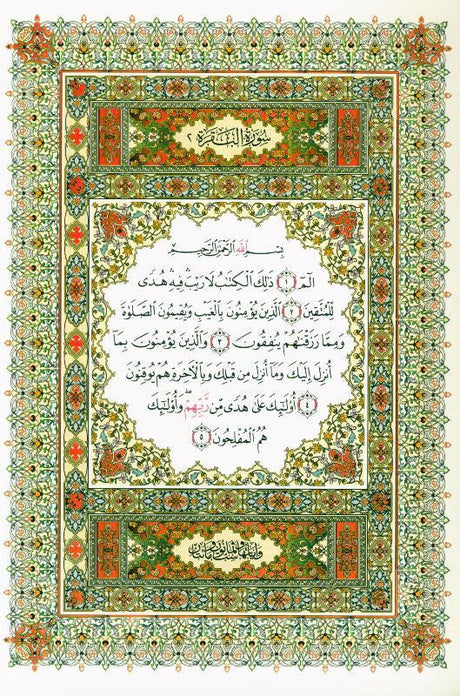 سورة البقرة ٢
بسم الله الرحمن الرحيم
الٓمٓ ﴿١﴾ ذَٰلِكَ ٱلْكِتَٰبُ لَا رَيْبَ فِيهِ هُدًى
لِّلْمُتَّقِينَ ﴿٢﴾ ٱلَّذِينَ يُؤْمِنُونَ بِٱلْغَيْبِ وَيُقِيمُونَ ٱلصَّلَوٰةَ
وَمِمَّا رَزَقْنَٰهُمْ يُنفِقُونَ ﴿٣﴾ وَٱلَّذِينَ يُؤْمِنُونَ بِمَآ
أُنزِلَ إِلَيْكَ وَمَآ أُنزِلَ مِن قَبْلِكَ وَبِٱلْءَاخِرَةِ هُمْ يُوقِنُونَ
﴿٤﴾ أُو۟لَٰٓئِكَ عَلَىٰ هُدًى مِّن رَّبِّهِمْ وَأُو۟لَٰٓئِكَ
هُمُ ٱلْمُفْلِحُونَ ﴿٥﴾